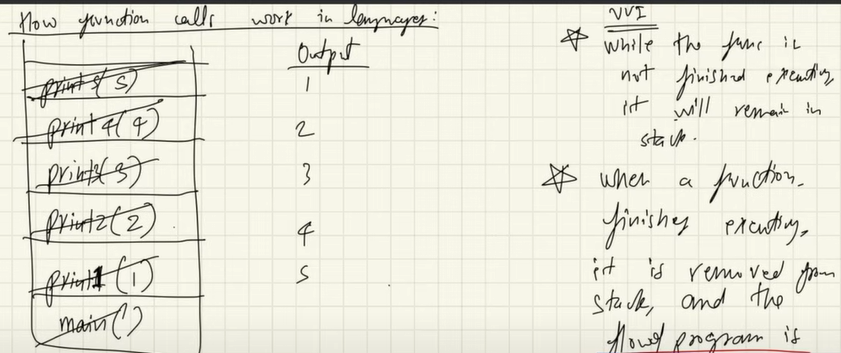 How function calls work in languages:
Output
print5(5)
1
print4(4)
2
print3(3)
3
print2(2)
4
print1(1)
5
main()
VVI
while the func is
not finished executing
it will remain in
stack.
when a function
finishes executing,
it is removed from
stack, and the
flow of program is